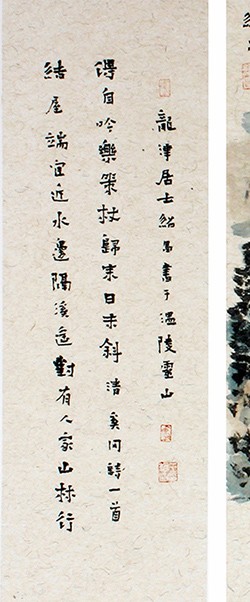 結屋端宜近水邊隔溪對有人家山林行
得自吟樂策杖歸來日未斜 清 奚冈詩一首
龍津居士紹書于溫陵靈山